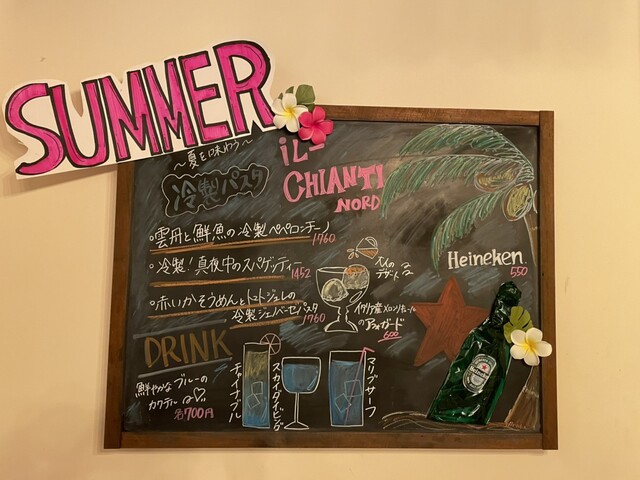 SUMMER
～夏を味わう～
冷製パスタ
iL
CHIANTI
NORD
・雲丹と鮮魚の冷製ペペロンチーノ
1760
・冷製!真夜中のスパゲッティー
1452
・赤いかそうめんとトマトジュレの
冷製ジェノバーゼパスタ
1760
大人の
デザート
イタリア産メロンリキュールの
アフォガード
600
Heineken.
550
DRINK
鮮やかなブルーの
カクテル
各700円
チャイナブルー
スカイダイビング
マリブサーフ
Heineken